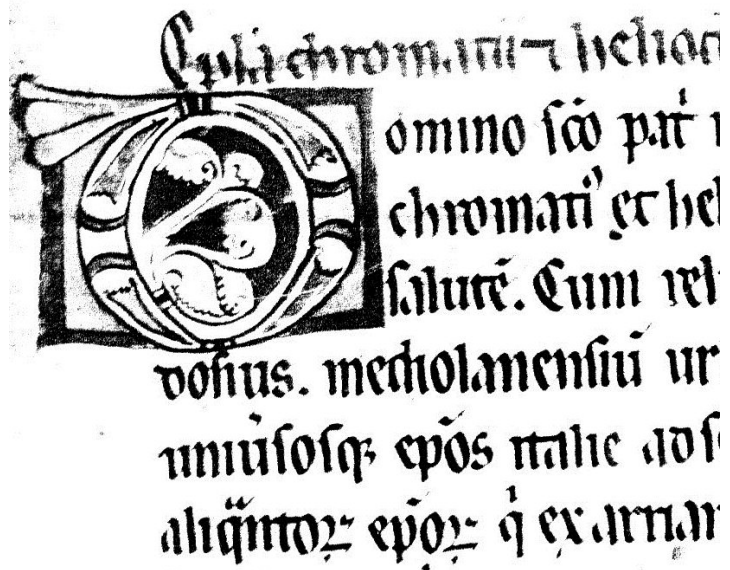 Epl'a chromatii ⁊ heliod
Domino sc̄o pat'
chromati' et hel
salutē. Cum rel
dosius. mediolanensiū ur
uniūsosq; ep̄os italie ad s
aliq̄ntoꝝ ep̄oꝝ q' ex arrian